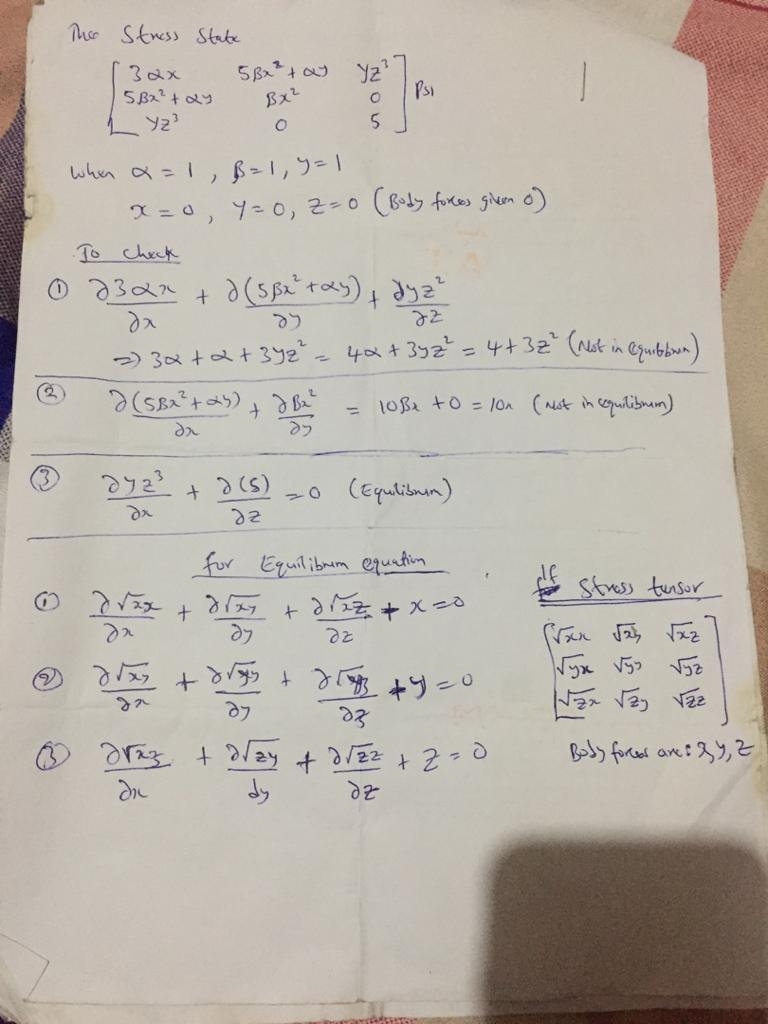 The Stress State
[ 3αx 5βx² + αy γz³ ]
[ 5βx² + αy βx² 0 ] Psi
[ γz³ 0 5 ]
when α = 1 , β = 1 , γ = 1
x = 0 , y = 0 , z = 0 (Body forces given 0)
To check
① ∂3αx/∂x + ∂(5βx² + αy)/∂y + ∂γz²/∂z
⇒ 3α + α + 3γz² = 4α + 3γz² = 4 + 3z² (Not in equilibrium)
② ∂(5βx² + αy)/∂x + ∂βx²/∂y = 10βx + 0 = 10x (Not in equilibrium)
③ ∂γz³/∂x + ∂(5)/∂z = 0 (Equilibrium)
for Equilibrium equation
① ∂√xx/∂x + ∂√xy/∂y + ∂√xz/∂z + x = 0
② ∂√xy/∂x + ∂√yy/∂y + ∂√yz/∂z + y = 0
③ ∂√xz/∂x + ∂√zy/dy + ∂√zz/∂z + z = 0
If Stress tensor
[ √xx √xy √xz ]
[ √yx √yy √yz ]
[ √zx √zy √zz ]
Body forces are: x, y, z